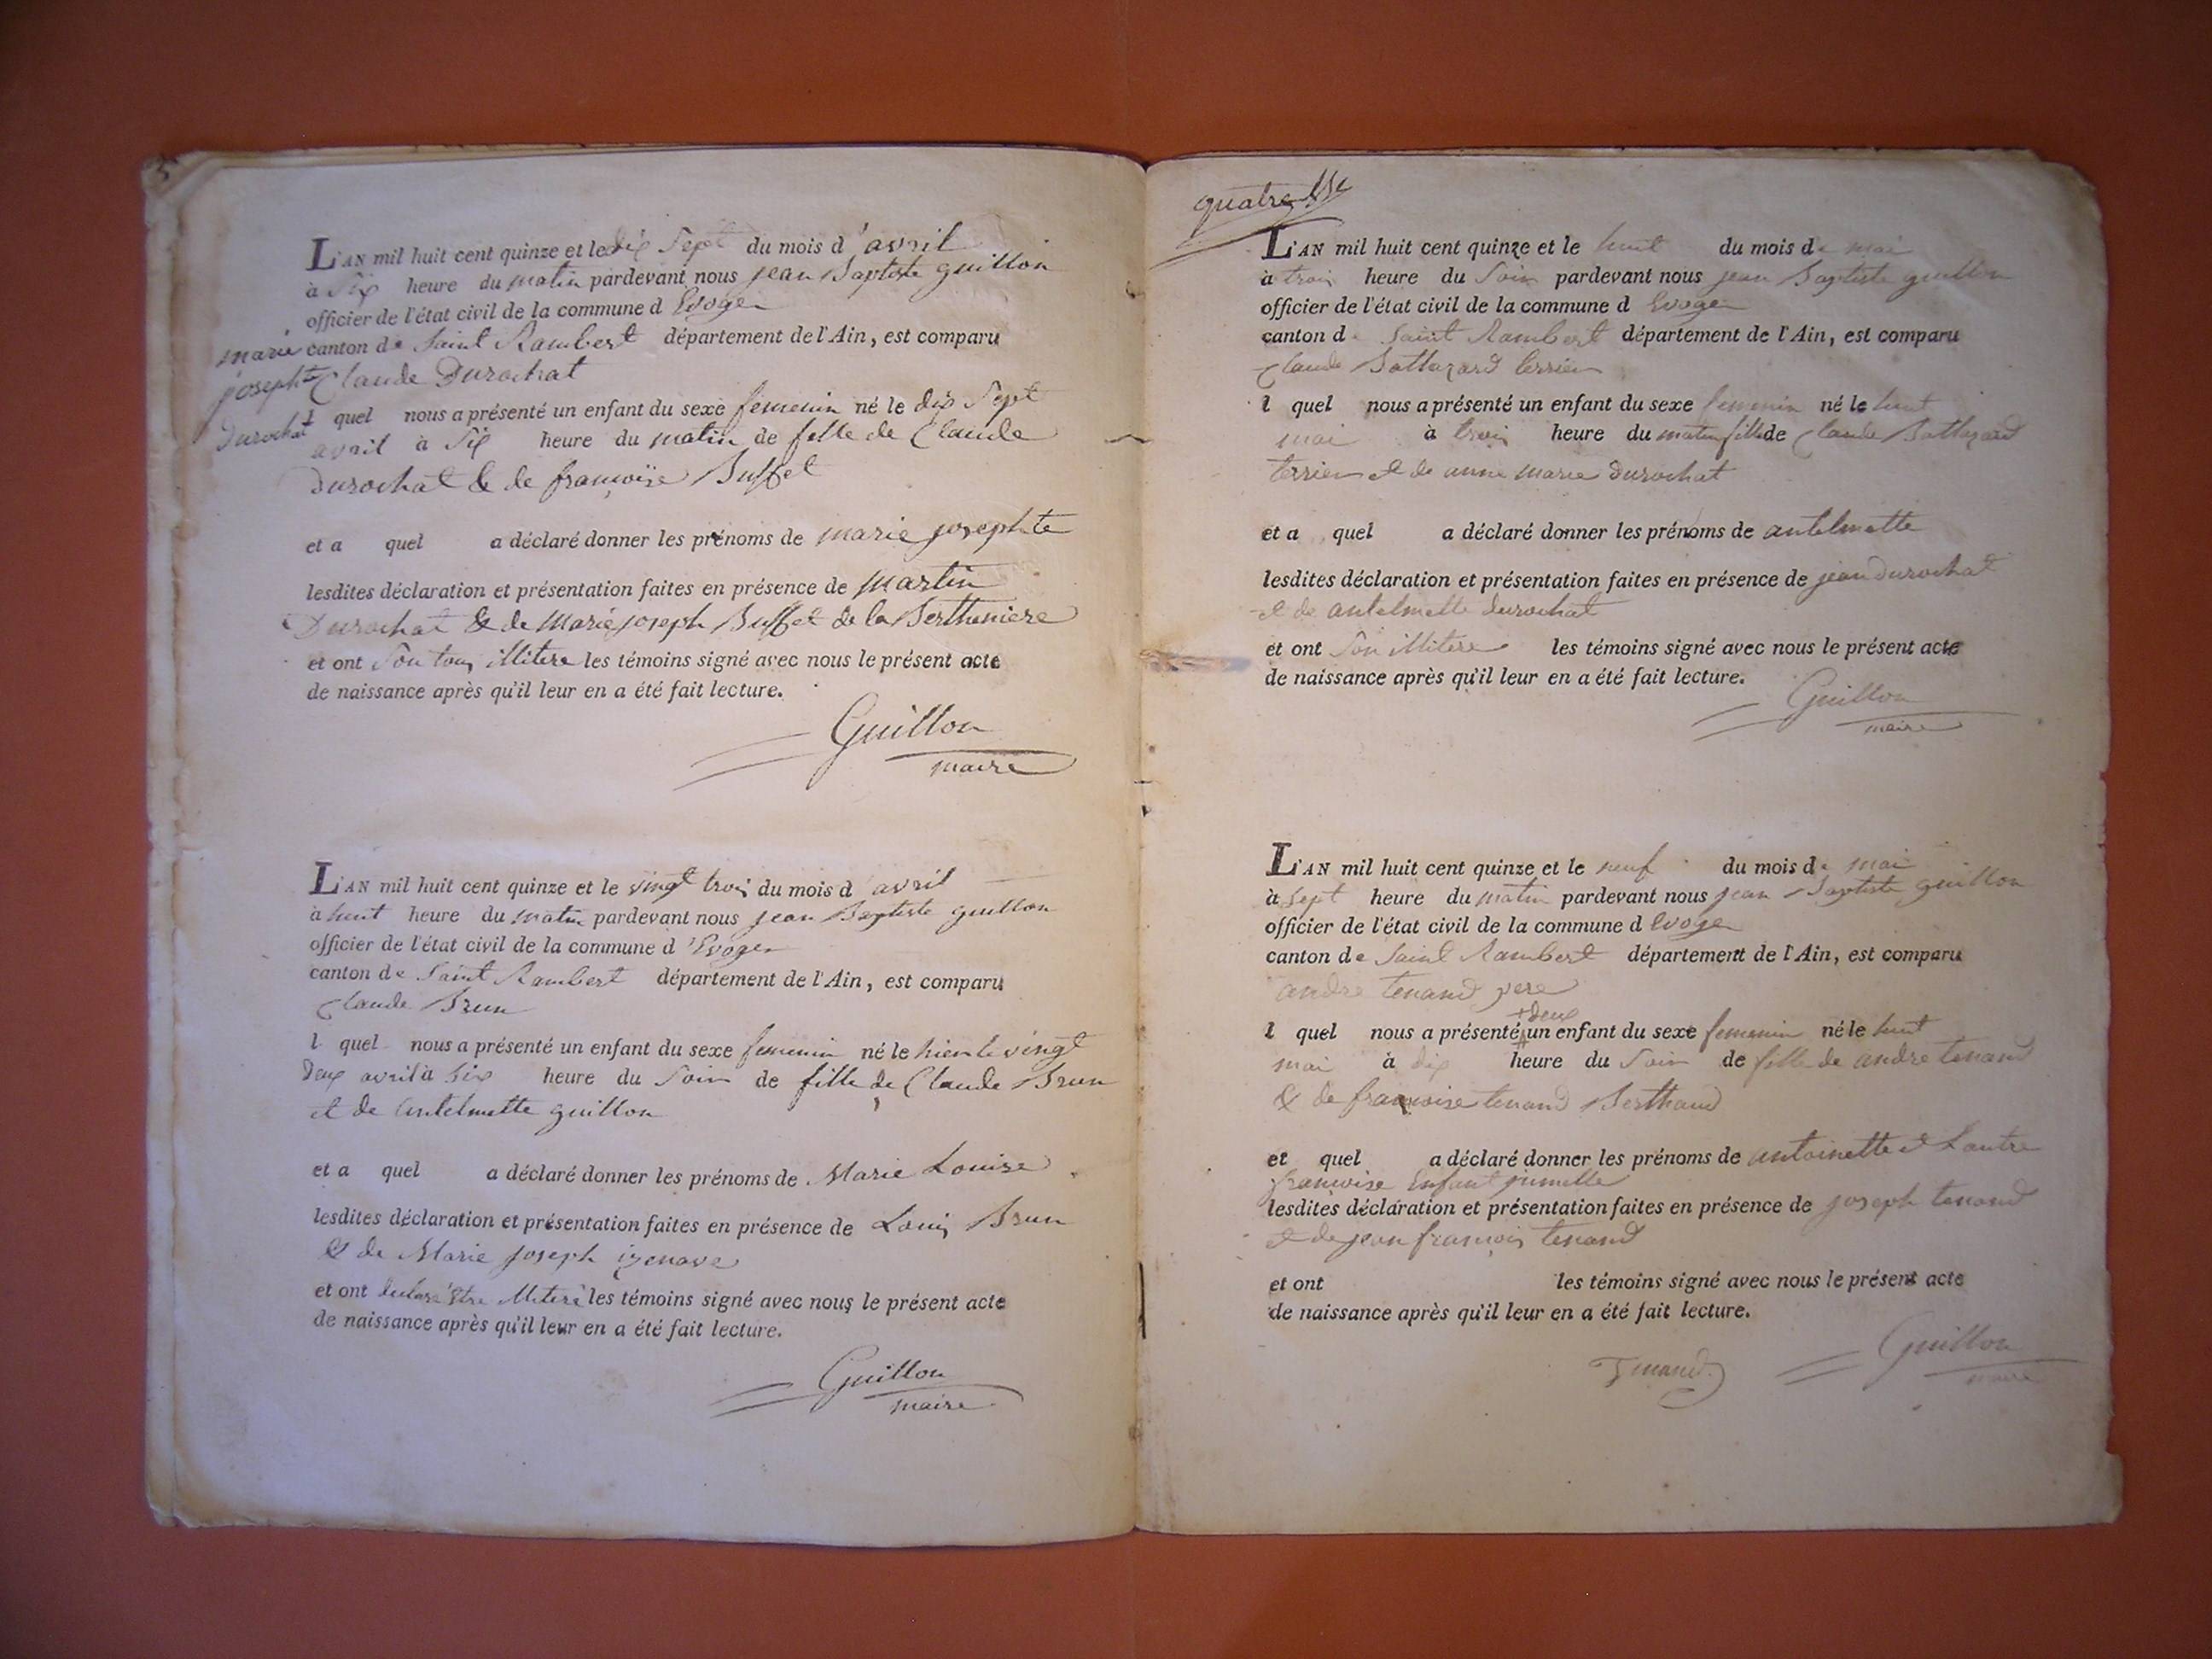 L'AN mil huit cent quinze et le dix Sept du mois d'avril
à Six heure du matin pardevant nous jean Baptiste guillon
officier de l'état civil de la commune d Evoges
canton de Saint Rambert département de l'Ain, est comparu
marie josephte Durochat
Claude Durochat
l quel nous a présenté un enfant du sexe femenin né le dix Sept
avril à Six heure du matin de fille de Claude
Durochat & de françoise Buffet
et a quel a déclaré donner les prénoms de marie josephte
lesdites déclaration et présentation faites en présence de martin
Durochat & de Marie joseph Buffet de la Bertheniere
et ont Son tous illitere les témoins signé avec nous le présent acte
de naissance après qu'il leur en a été fait lecture.
Guillon
maire
L'AN mil huit cent quinze et le vingt trois du mois d avril
à huit heure du matin pardevant nous jean Baptiste guillon
officier de l'état civil de la commune d'Evoges
canton de Saint Rambert département de l'Ain, est comparu
Claude Brun
l quel nous a présenté un enfant du sexe femenin né le hier le vingt
deux avril à Six heure du Soir de fille de Claude Brun
et de antelmette guillon
et a quel a déclaré donner les prénoms de Marie Louise
lesdites déclaration et présentation faites en présence de Louis Brun
& de Marie joseph izenave
et ont declare Etre illiteré les témoins signé avec nous le présent acte
de naissance après qu'il leur en a été fait lecture.
Guillon
maire
quatre
L'AN mil huit cent quinze et le huit du mois de mai
à trois heure du Soir pardevant nous jean Baptiste guillon
officier de l'état civil de la commune d Evoges
canton d. Saint Rambert département de l'Ain, est comparu
Claude Baltazard terrier
l quel nous a présenté un enfant du sexe femenin né le huit
mai à trois heure du matin fille de Claude Baltazard
terrier et de anne marie durochat
et a quel a déclaré donner les prénoms de antelmette
lesdites déclaration et présentation faites en présence de jean durochat
et de antelmette durochat
et ont Son illitere les témoins signé avec nous le présent acte
de naissance après qu'il leur en a été fait lecture.
Guillon
maire
L'AN mil huit cent quinze et le neuf du mois de mai
à Sept heure du matin pardevant nous jean Baptiste guillon
officier de l'état civil de la commune d Evoges
canton de Saint Rambert département de l'Ain, est comparu
andre tenand pere
+deux
l quel nous a présenté un enfant du sexe femenin né le huit
mai à dix heure du Soir de fille de andre tenand
& de françoise tenand Berthaud
et quel a déclaré donner les prénoms de antoinette et Lautre
françoise Enfant jumelle
lesdites déclaration et présentation faites en présence de joseph tenand
et de jean francois tenand
et ont les témoins signé avec nous le présent acte
de naissance après qu'il leur en a été fait lecture.
Tenand Guillon
maire